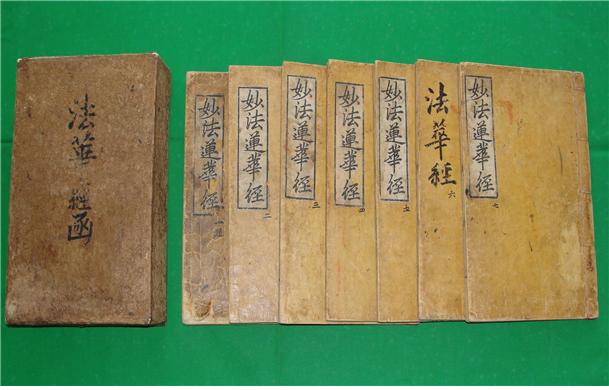 法華經函
妙法蓮華經
一
妙法蓮華經
二
妙法蓮華經
三
妙法蓮華經
四
妙法蓮華經
五
法華經
六
妙法蓮華經
七